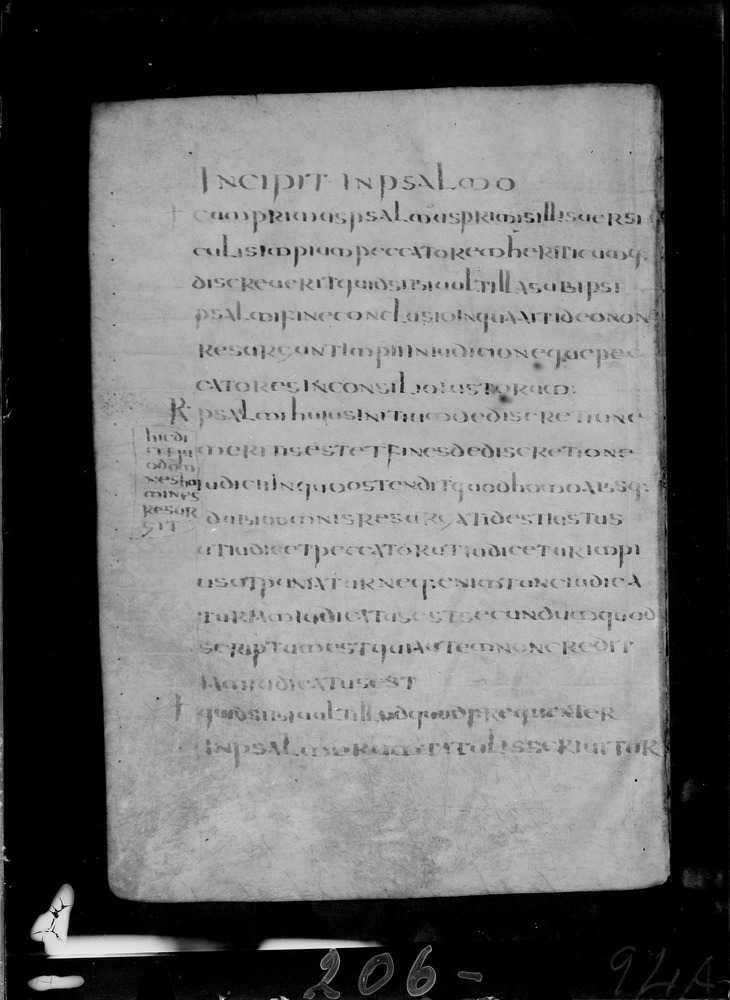 INCIPIT IN PSALMO
CUM PRIMUS PSALMUS PRIMIS ILLIS UERSI
CULIS IMPIUM PECCATOREM HERITICUMQ·
DISCREUERIT QUID SIBI UULT ILLA SUB IPSI
PSALMI FINE CONCLUSIO IN QUA AIT IDEO NON
RESURGUNT IMPII IN IUDICIO NEQUE PEC
CATORES IN CONSILIO IUSTORUM:
R PSALMI HUIUS INITIUM DE DISCRETIONE
MERITIS EST ET FINES DE DISCRETIONE
IUDICII IN QUO OSTENDIT QUOD HOMO ABSQ·
DUBIO OMNIS RESURGAT IDEST IUSTUS
UT IUDICET PECCATOR UT IUDICETUR IMPI
US UT PUNIATUR NEQ· ENIM TUNC IUDICA
TUR IAM IUDICATUS EST SECUNDUM QUOD
SCRIPTUM EST QUI AUTEM NON CREDIT
IAM IUDICATUS EST
QUID SIBI UULT ILLUD QUOD FREQUENTER
IN PSALMORUM TITULIS SCRIBITUR
HIC DI
ODOM
NES HO
MINES
RESUR
206-
94A